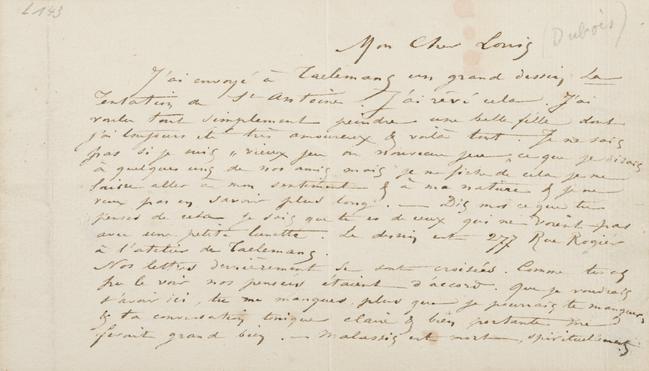 L 143
(Dubois)
Mon Cher Louis
J'ai envoyé à Taelemans un grand dessin, La
Tentation de St Antoine. J'ai rêvé cela. J'ai
voulu tout simplement peindre une belle fille dont
j'ai toujours été très amoureux & voilà tout. Je ne sais
pas si je suis "vieux jeu ou nouveau jeu" ce que je disais
à quelques uns de nos amis, mais je me fiche de cela je me
laisse aller à mon sentiment & à ma nature & je ne
veux pas en savoir plus long. — Dis moi ce que tu
penses de cela je sais que tu es de ceux qui ne voient pas
avec une petite lunette. Le dessin est 277 Rue Rogier
à l'atelier de Taelemans.
Nos lettres dernièrement se sont croisées. Comme tu as
pu le voir nos pensées étaient d'accord. Que je voudrais
t'avoir ici, tu me manques plus que je pourrais te manquer
& ta conversation tonique claire & bien portante me
ferait grand bien. — Malassis est mort, spirituellement